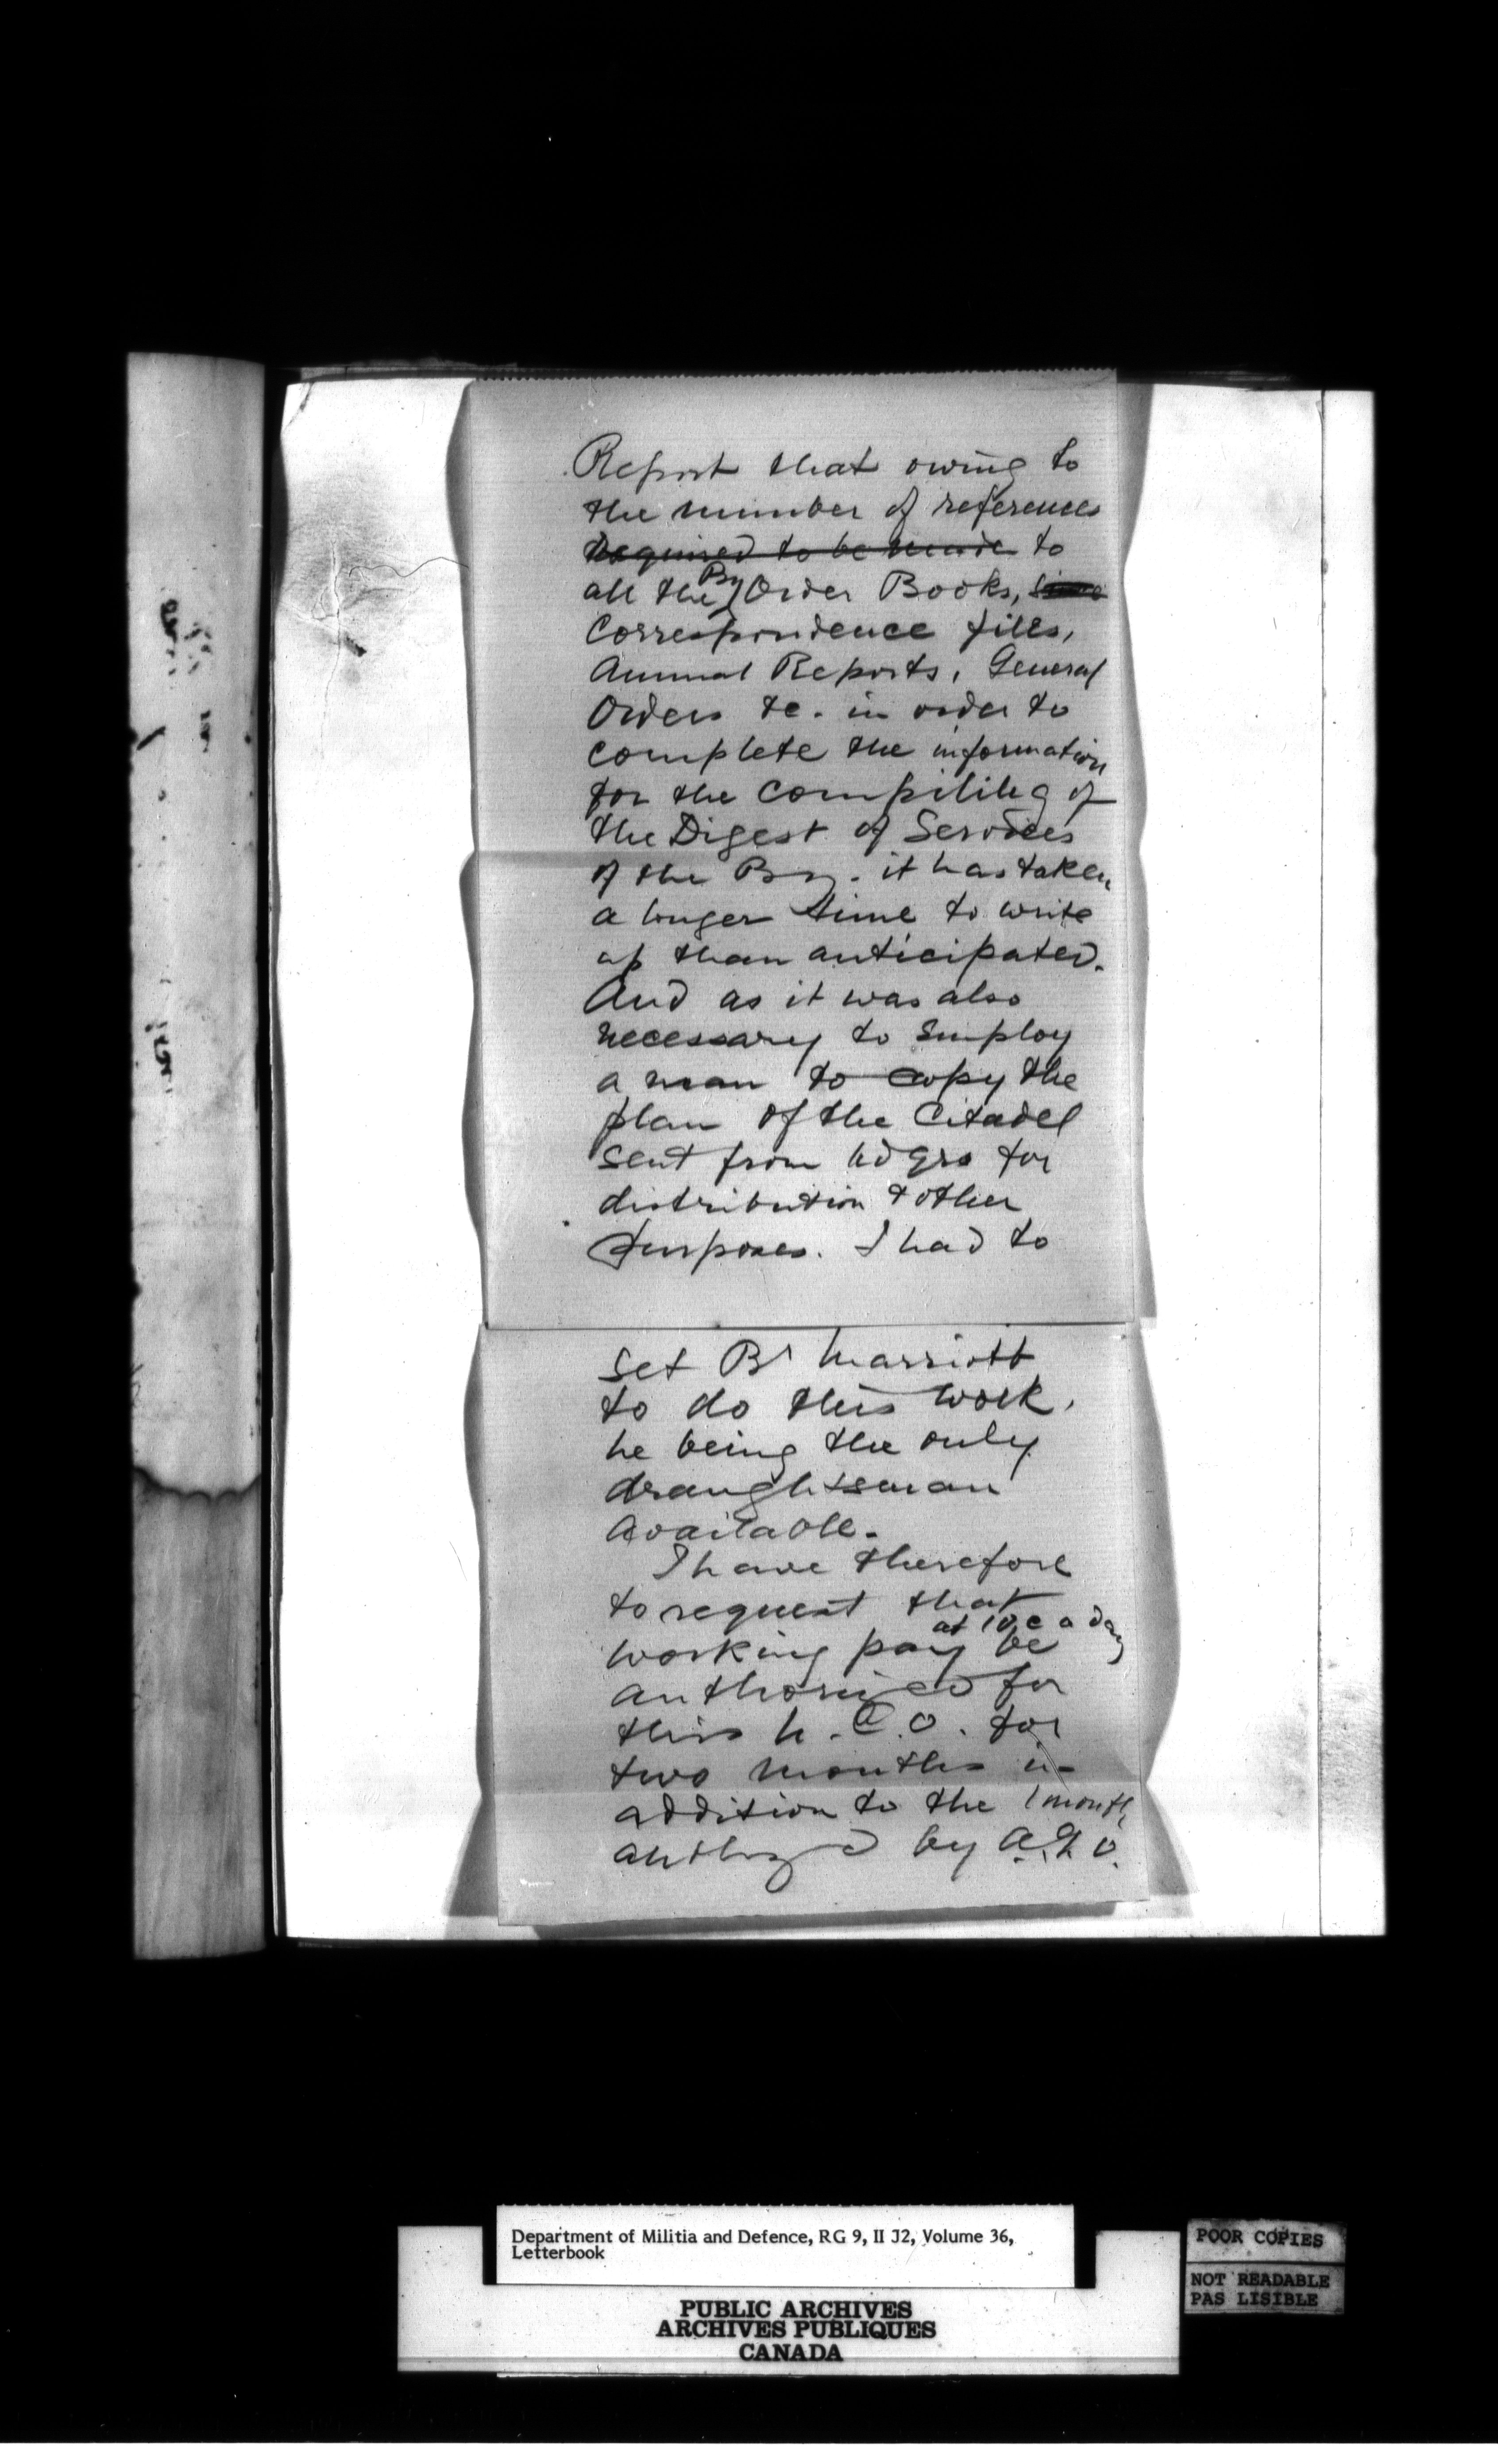 Report that owing to
the number of references
required to be made to
all the By Order Books, since
Correspondence files,
Annual Reports, General
Orders &c. in order to
complete the information
for the compiling of
the Digest of Services
of the By. it has taken
a longer time to write
up than anticipated.
And as it was also
necessary to employ
a man to copy the
plan of the Citadel
sent from hdqrs for
distribution & other
purposes. I had to
get Br Marriott
to do this work,
he being the only
draughtsman
available.
I have therefore
to request that
at 10c a day
working pay be
authorized for
this N.C.O. for
two months in
addition to the 1 month
by A.G.O.
Department of Militia and Defence, RG 9, II J2, Volume 36,
Letterbook
POOR COPIES
NOT READABLE
PAS LISIBLE
PUBLIC ARCHIVES
ARCHIVES PUBLIQUES
CANADA